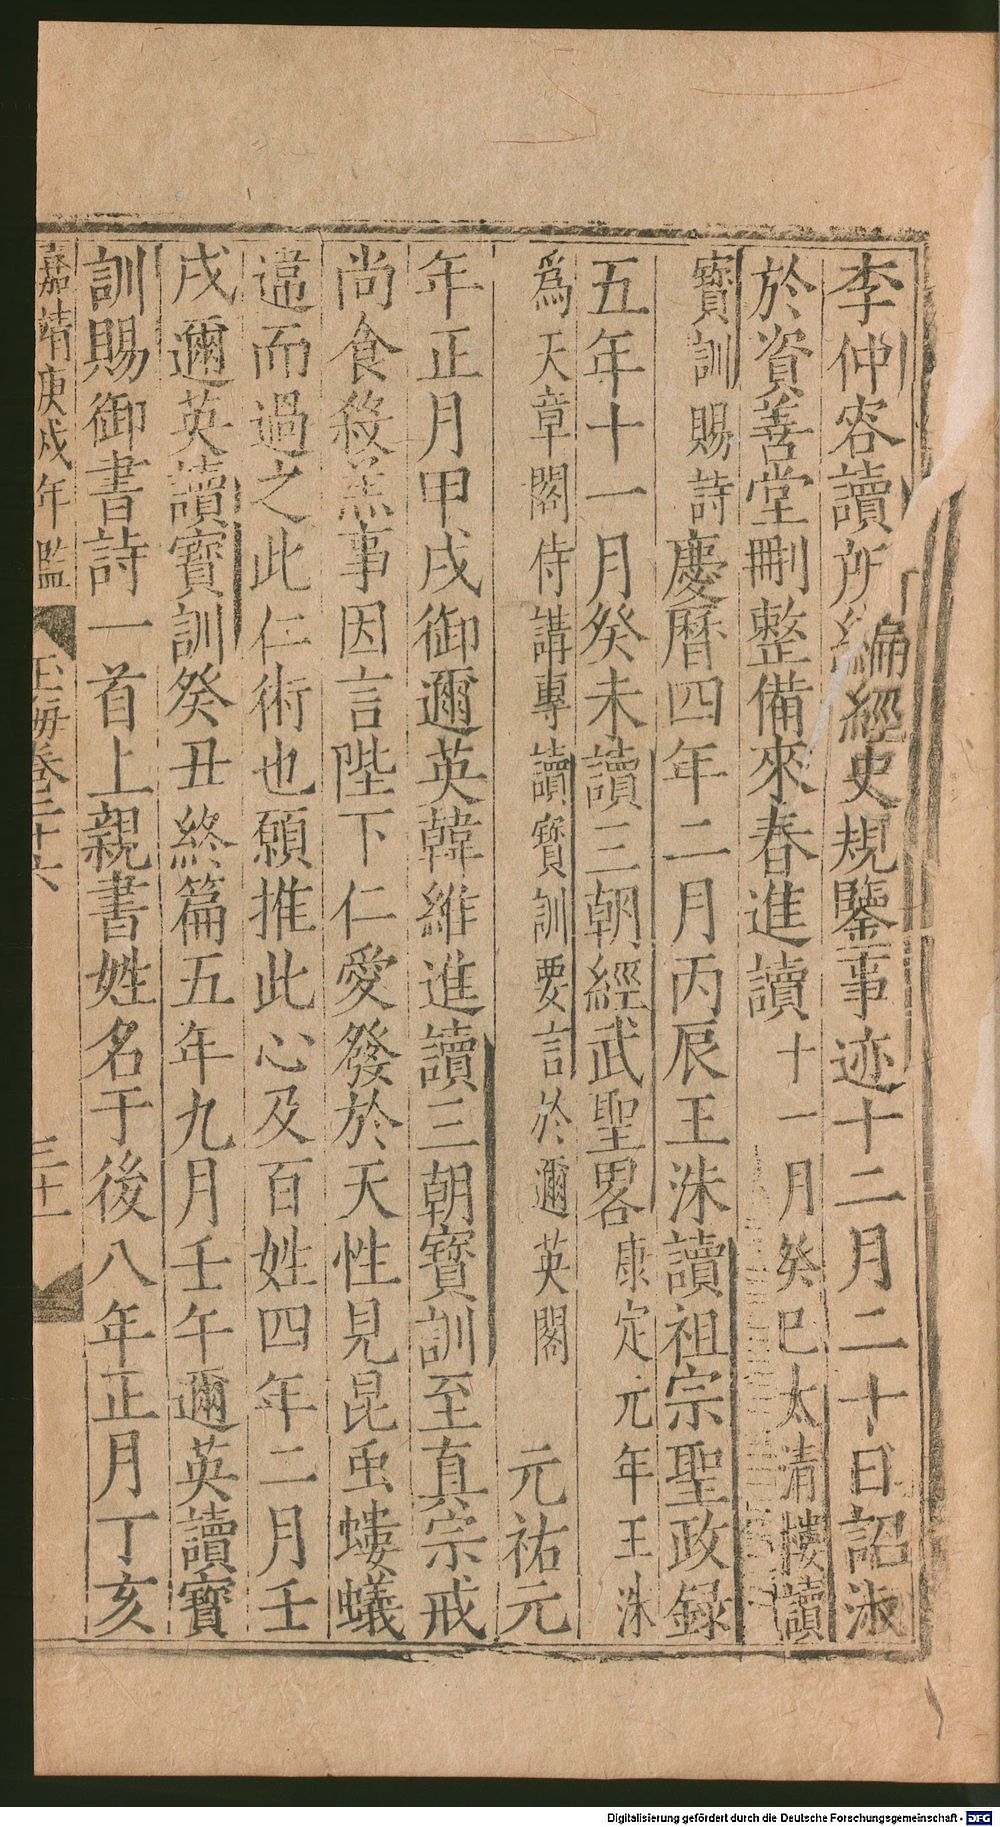 李仲容讀所編經史規鑒事迹十二月二十日詔淑
於資善堂刪整備來春進讀十一月癸巳太清樓讀
寶訓賜詩慶曆四年二月丙辰王洙讀祖宗聖政録
五年十一月癸未讀三朝經武聖畧康定元年王洙
爲天章閣侍講專讀寶訓要言於邇英閣 元祐元
年正月甲戌御邇英韓維進讀三朝寶訓至真宗戒
尚食殺羔事因言陛下仁愛發於天性見昆虫螻蟻
違而過之此仁術也願推此心及百姓四年二月壬
戌邇英讀寶訓癸丑終篇五年九月壬午邇英讀寳
訓賜御書詩一首上親書姓名于後八年正月丁亥
嘉靖庚戌年監 玉海卷二十六 三十一
Digitalisierung gefördert durch die Deutsche Forschungsgemeinschaft - DFG